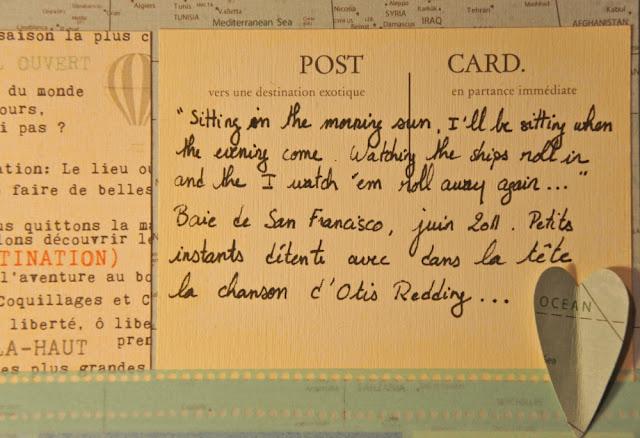 Algiers
Tunis
TUNISIA
Valletta
Mediterranean Sea
Nicosia
Aleppo
SYRIA
Damascus
IRAQ
Tehran
Mashhad
AFGHANISTAN
saison la plus c
OUVERT
du monde
ours,
i pas ?
ation: Le lieu ou
faire de belles
us quittons la ma
lons découvrir le
TINATION)
l'aventure au bo
Coquillages et C
liberté, ô libe
LA-HAUT pren
es plus grandes
POST CARD.
vers une destination exotique en partance immédiate
"Sitting in the morning sun, I'll be sitting when
the evening come. Watching the ships roll in
and the I watch 'em roll away again..."
Baie de San Francisco, juin 2011. Petits
instants détente avec dans la tête
la chanson d'Otis Redding...
OCEAN
Sea